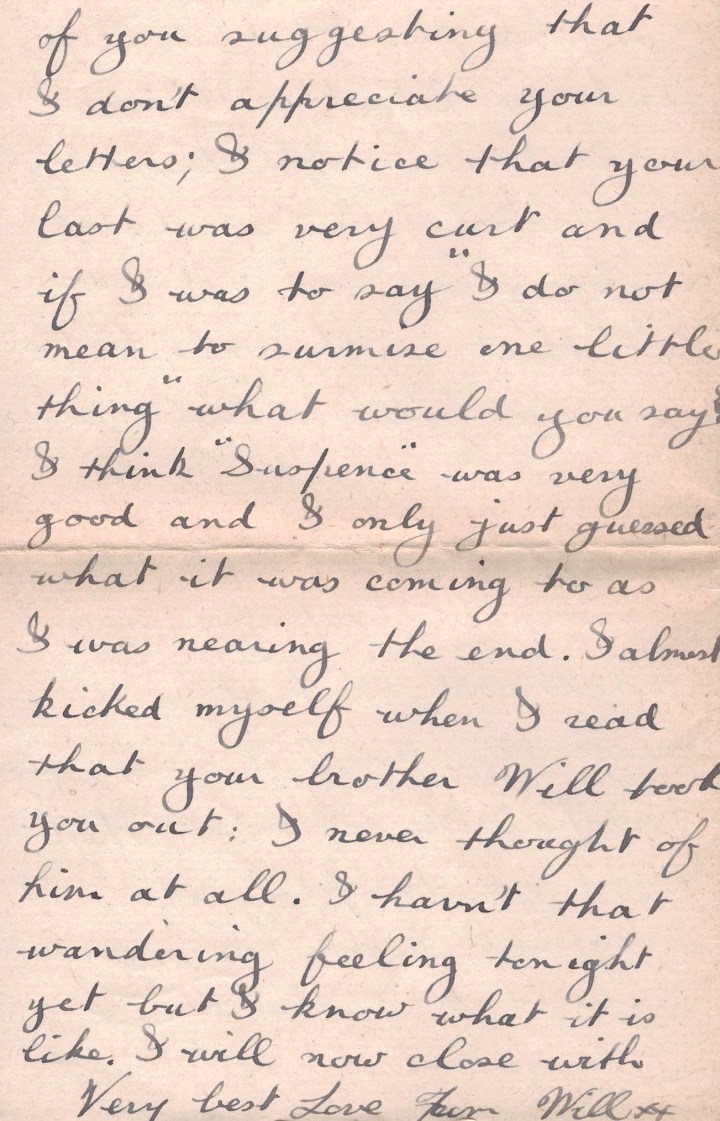 of you suggesting that
I don't appreciate your
letters; I notice that your
last was very curt and
if I was to say "I do not
mean to surmise one little
thing" what would you say?
I think "Suspence" was very
good and I only just guessed
what it was coming to as
I was nearing the end. I almost
kicked myself when I read
that your brother Will took
you out: I never thought of
him at all. I havn't that
wandering feeling tonight
yet but I know what it is
like. I will now close with
Very best Love From Will xx